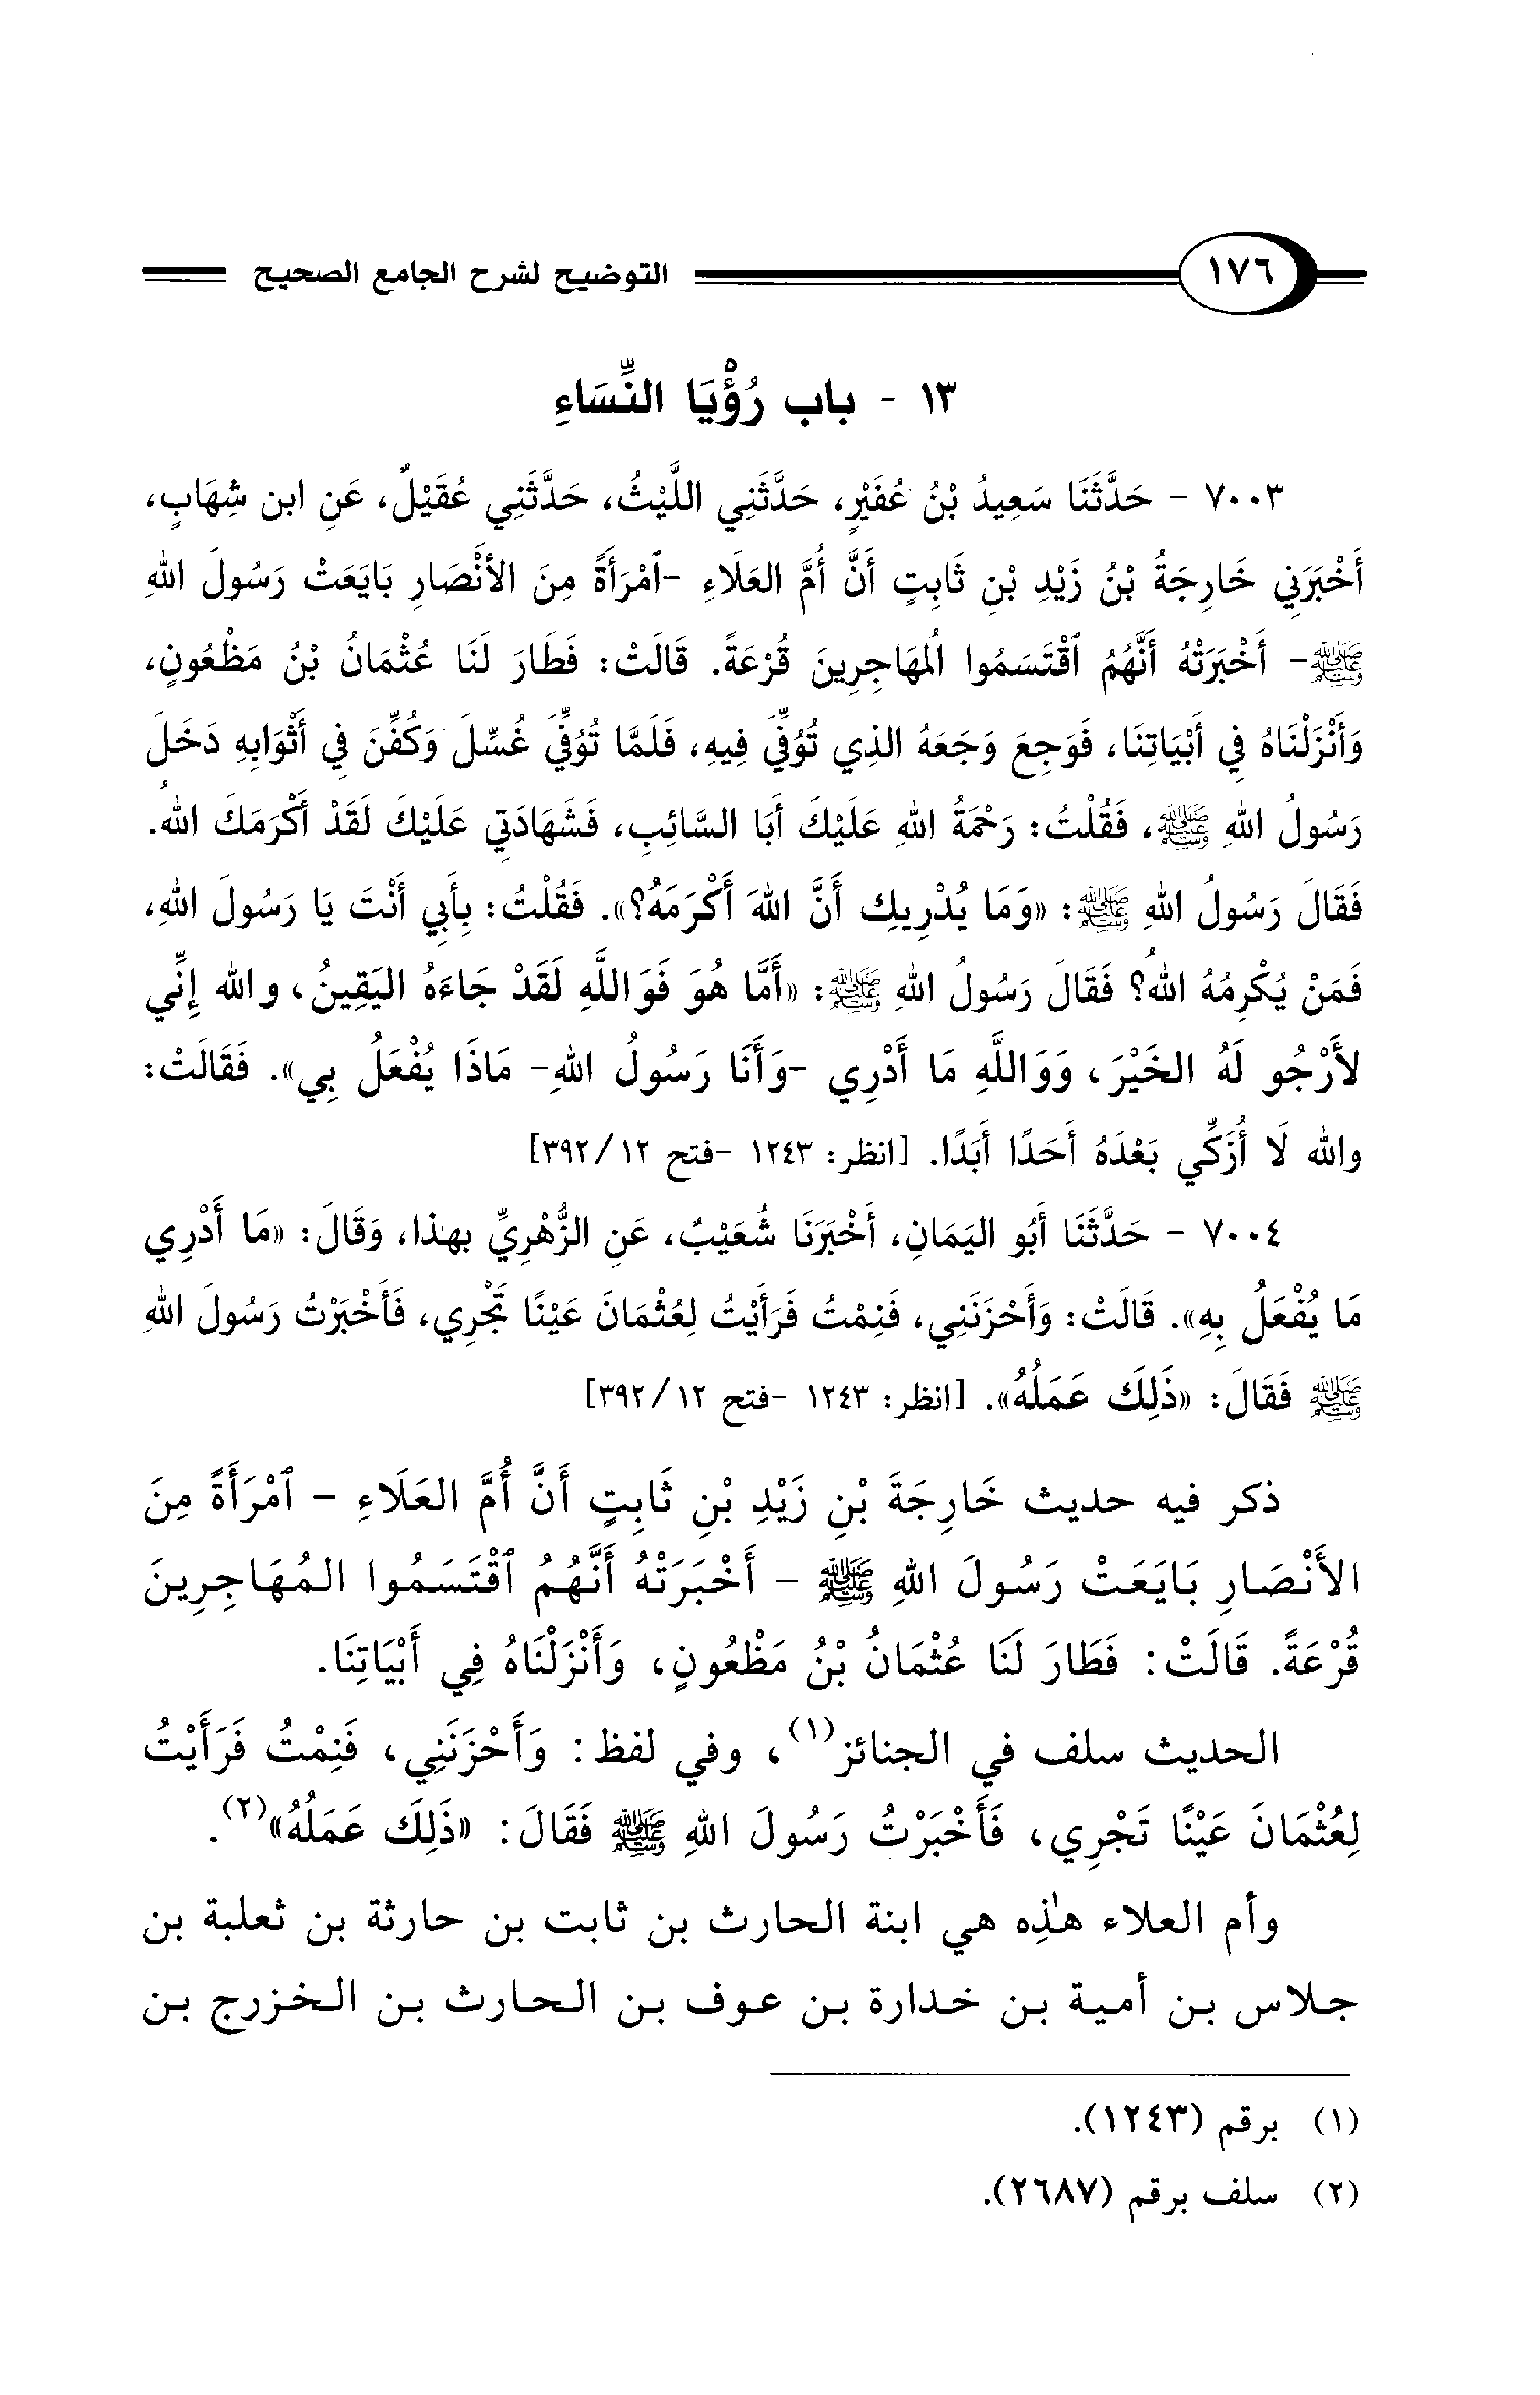 ١٧٦ التوضيح لشرح الجامع الصحيح
١٣ - باب رُؤْيَا النِّسَاءِ
٧٠٠٣ - حَدَّثَنَا سَعِيدُ بْنُ عُفَيْرٍ، حَدَّثَنِي اللَّيْثُ، حَدَّثَنِي عُقَيْلٌ، عَنِ ابن شِهَابٍ،
أَخْبَرَنِي خَارِجَةُ بْنُ زَيْدِ بْنِ ثَابِتٍ أَنَّ أُمَّ العَلَاءِ -ٱمْرَأَةً مِنَ الأَنْصَارِ بَايَعَتْ رَسُولَ اللهِ
ﷺ- أَخْبَرَتْهُ أَنَّهُمُ ٱقْتَسَمُوا الُمهَاجِرِينَ قُرْعَةً. قَالَتْ: فَطَارَ لَنَا عُثْمَانُ بْنُ مَظْعُونٍ،
وَأَنْزَلْنَاهُ فِي أَبْيَاتِنَا، فَوَجِعَ وَجَعَهُ الذِي تُوُفِّيَ فِيهِ، فَلَمَّا تُوُفِّيَ غُسِّلَ وَكُفِّنَ فِي أَثْوَابِهِ دَخَلَ
رَسُولُ اللهِ ﷺ، فَقُلْتُ: رَحْمَةُ اللهِ عَلَيْكَ أَبَا السَّائِبِ، فَشَهَادَتِي عَلَيْكَ لَقَدْ أَكْرَمَكَ اللهُ.
فَقَالَ رَسُولُ اللهِ ﷺ: «وَمَا يُدْرِيكِ أَنَّ اللهَ أَكْرَمَهُ؟». فَقُلْتُ: بِأَبِي أَنْتَ يَا رَسُولَ اللهِ،
فَمَنْ يُكْرِمُهُ اللهُ؟ فَقَالَ رَسُولُ اللهِ ﷺ: «أَمَّا هُوَ فَوَاللَّهِ لَقَدْ جَاءَهُ اليَقِينُ، والله إِنِّي
لأَرْجُو لَهُ الخَيْرَ، وَوَاللَّهِ مَا أَدْرِي -وَأَنَا رَسُولُ اللهِ- مَاذَا يُفْعَلُ بِي». فَقَالَتْ:
والله لَا أُزَكِّي بَعْدَهُ أَحَدًا أَبَدًا. [انظر: ١٢٤٣ -فتح ١٢/ ٣٩٢]
٧٠٠٤ - حَدَّثَنَا أَبُو اليَمَانِ، أَخْبَرَنَا شُعَيْبٌ، عَنِ الزُّهْرِيِّ بهذا، وَقَالَ: «مَا أَدْرِي
مَا يُفْعَلُ بِهِ». قَالَتْ: وَأَحْزَنَنِي، فَنِمْتُ فَرَأَيْتُ لِعُثْمَانَ عَيْنًا تَجْرِي، فَأَخْبَرْتُ رَسُولَ اللهِ
ﷺ فَقَالَ: «ذَلِكَ عَمَلُهُ». [انظر: ١٢٤٣ -فتح ١٢/ ٣٩٢]
ذكر فيه حديث خَارِجَةَ بْنِ زَيْدِ بْنِ ثَابِتٍ أَنَّ أُمَّ العَلَاءِ - ٱمْرَأَةً مِنَ
الأَنْصَارِ بَايَعَتْ رَسُولَ اللهِ ﷺ - أَخْبَرَتْهُ أَنَّهُمُ ٱقْتَسَمُوا المُهَاجِرِينَ
قُرْعَةً. قَالَتْ: فَطَارَ لَنَا عُثْمَانُ بْنُ مَظْعُونٍ، وَأَنْزَلْنَاهُ فِي أَبْيَاتِنَا.
الحديث سلف في الجنائز(١)، وفي لفظ: وَأَحْزَنَنِي، فَنِمْتُ فَرَأَيْتُ
لِعُثْمَانَ عَيْنًا تَجْرِي، فَأَخْبَرْتُ رَسُولَ اللهِ ﷺ فَقَالَ: «ذَلِكَ عَمَلُهُ»(٢).
وأم العلاء هذِه هي ابنة الحارث بن ثابت بن حارثة بن ثعلبة بن
جلاس بن أمية بن خدارة بن عوف بن الحارث بن الخزرج بن
(١) برقم (١٢٤٣).
(٢) سلف برقم (٢٦٨٧).